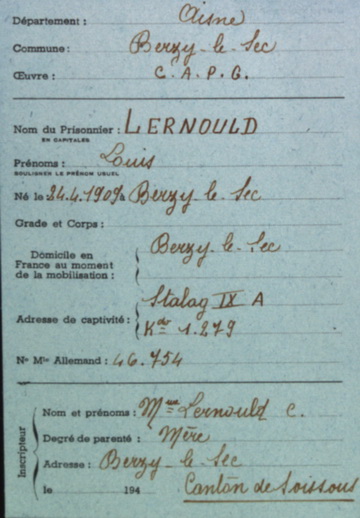 Département : Aisne
Commune : Berzy-le-Sec
Œuvre : C. A. P. G.
Nom du Prisonnier : LERNOULD
EN CAPITALES
Prénoms : Louis
SOULIGNER LE PRÉNOM USUEL
Né le 24.4.1909 à Berzy-le-Sec
Grade et Corps :
Domicile en
France au moment
de la mobilisation :
Berzy-le-Sec
Adresse de captivité :
Stalag IX A
Kdo 1.279
N° Mle Allemand : 46.754
Inscripteur
Nom et prénoms : Mme Lernould C.
Degré de parenté : Mère
Adresse : Berzy-le-Sec
le 194 Canton de Soissons